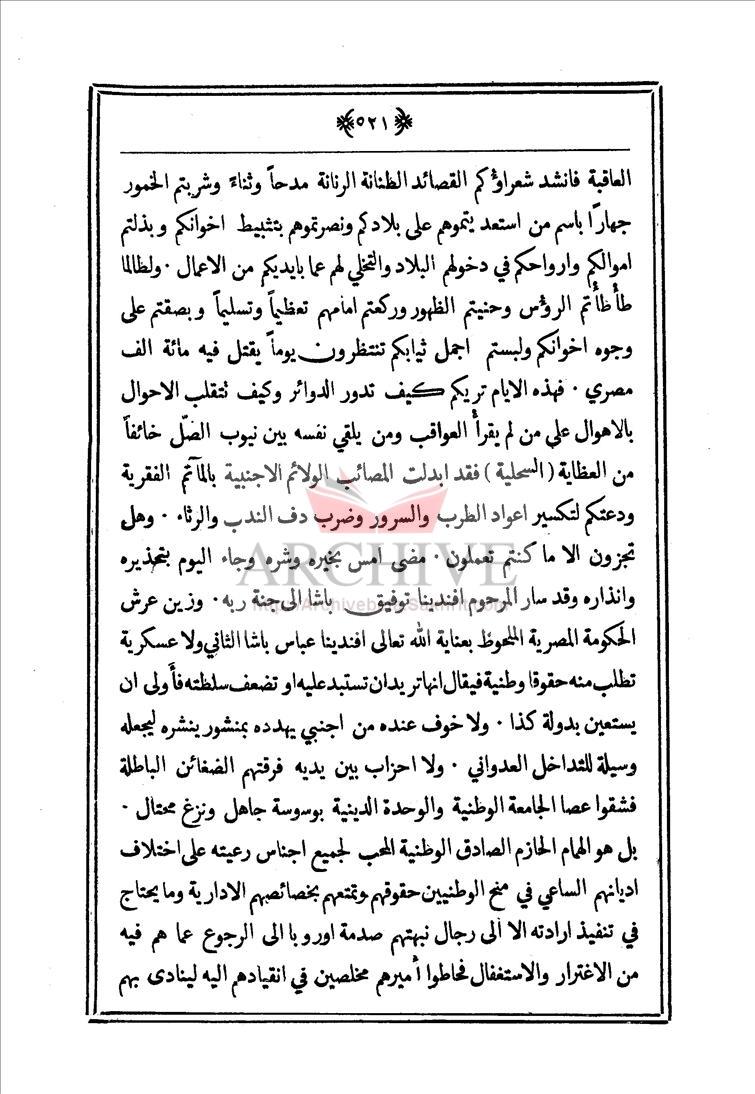 ﴿٥٢١﴾
العاقبة فانشد شعراؤكم القصائد الطنانة الرنانة مدحاً وثناءً وشربتم الخمور
جهارًا باسم من استعد يتموهم على بلادكم ونصرتموهم بتثبيط اخوانكم وبذلتم
اموالكم وارواحكم في دخولهم البلاد والتخلي لهم عما بايديكم من الاعمال ٠ ولطالما
طأطأتم الرؤس وحنيتم الظهور وركعتم امامهم تعظيماً وتسليماً وبصقتم على
وجوه اخوانكم ولبستم اجمل ثيابكم تنتظرون يوماً يقتل فيه مائة الف
مصري ٠ فهذه الايام تريكم كيف تدور الدوائر وكيف تتقلب الاحوال
بالاهوال على من لم يقرأ العواقب ومن يلقي نفسه بين نيوب الصّل خائفاً
من العظاية ( السحلية ) فقد ابدلت المصائب الولائم الاجنبية بالمآتم الفقرية
ودعتكم لتكسير اعواد الطرب والسرور وضرب دف الندب والرثاء ٠ وهل
تجزون الا ما كنتم تعملون ٠ مضى امس بخيره وشره وجاء اليوم بتحذيره
ARCHIVE
وانذاره وقد سار المرحوم افندينا توفيق باشا الى جنة ربه ٠ وزين عرش
الحكومة المصرية الملحوظ بعناية الله تعالى افندينا عباس باشا الثاني ولا عسكرية
تطلب منه حقوقا وطنية فيقال انها تريدان تستبد عليه او تضعف سلطته فأولى ان
يستعين بدولة كذا ٠ ولا خوف عنده من اجنبي يهدده بمنشور ينشره ليجعله
وسيلة للتداخل العدواني ٠ ولا احزاب بين يديه فرقتهم الضغائن الباطلة
فشقوا عصا الجامعة الوطنية والوحدة الدينية بوسوسة جاهل ونزغ محتال ٠
بل هو الهمام الحازم الصادق الوطنية المحب لجميع اجناس رعيته على اختلاف
اديانهم الساعي في منح الوطنيين حقوقهم وتمتعهم بخصائصهم الادارية وما يحتاج
في تنفيذ ارادته الا الى رجال نبهتهم صدمة اوروبا الى الرجوع عما هم فيه
من الاغترار والاستغفال فحاطوا أميرهم مخلصين في انقيادهم اليه لينادى بهم